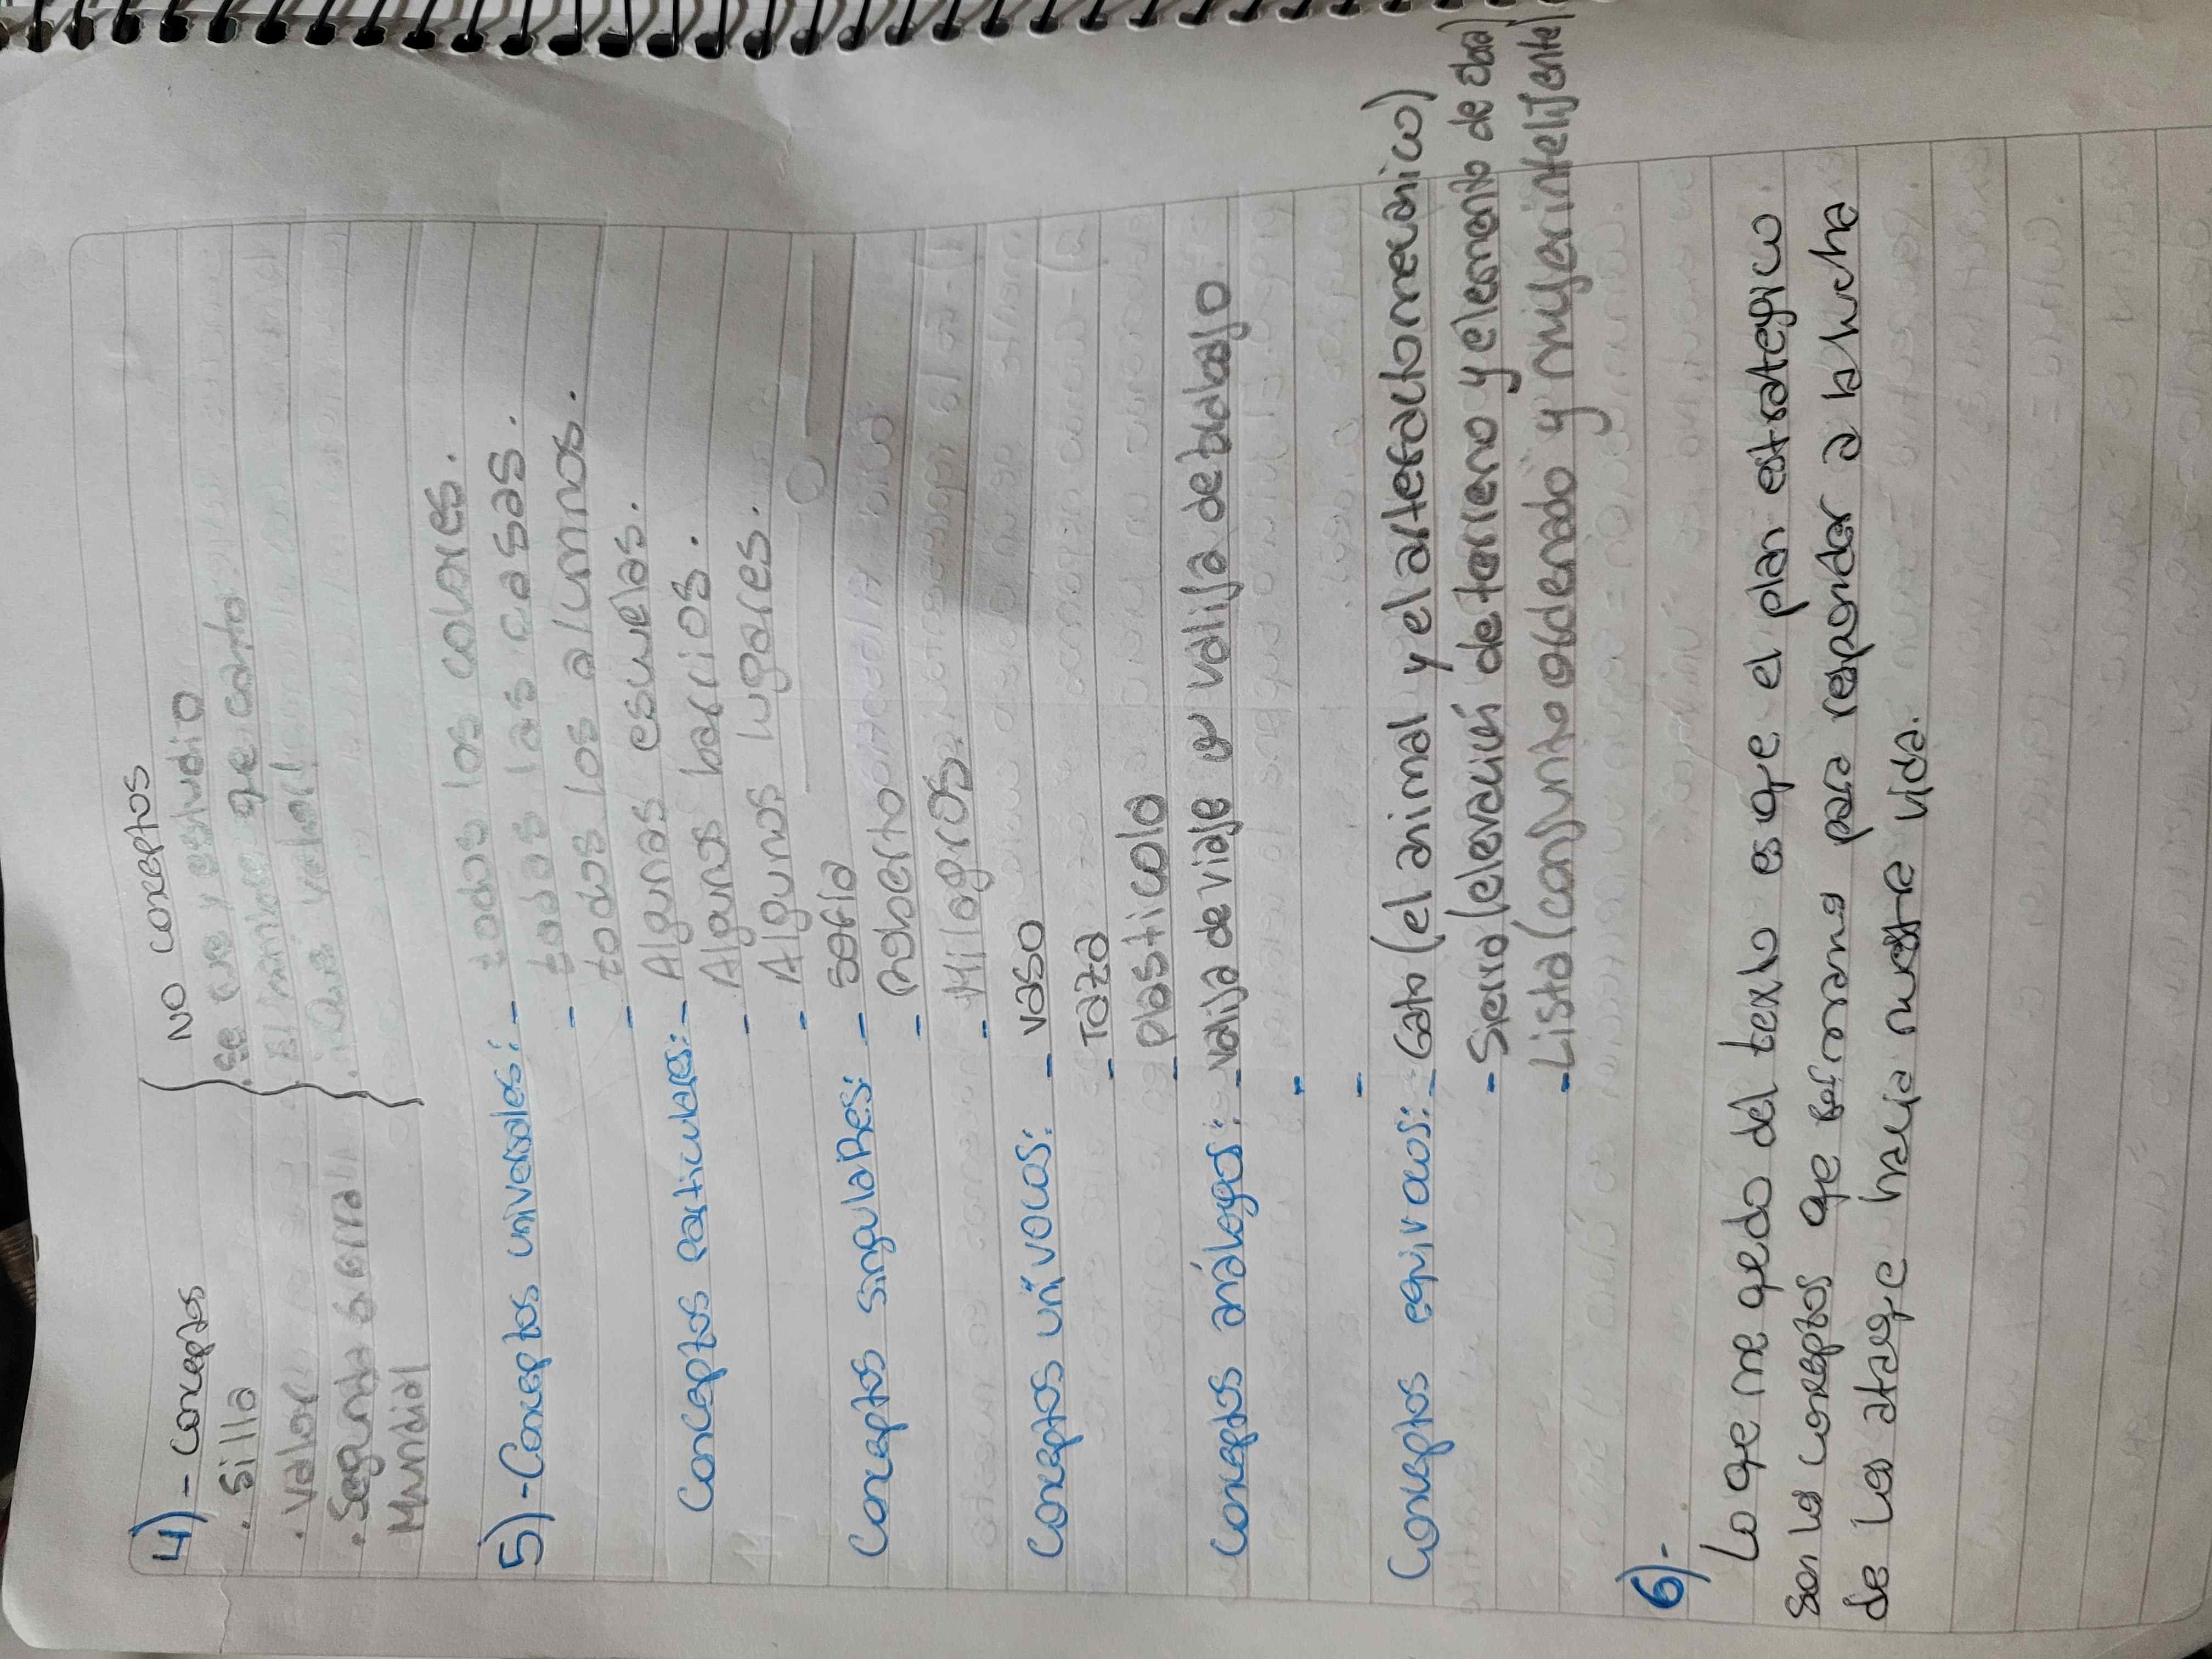 4)- Conceptos NO conceptos
. Silla . Se rie y estudio
. Valor El minitose que carto
. Segunda Guerra
Mundial
5)-Conceptos universales: - todos los colores.
- todas las casas.
- todos los alumnos.
Conceptos particulares: - Algunas escuelas.
- Algunos barrios.
- Algunos lugares.
Conceptos singulaRes: - sofia
- Roberto
- Milagros.
Conceptos univocos: - vaso
- Taza
- plasticola
Conceptos análogos: - valija de viaje y valija de trabajo
-
-
Conceptos equivocos: - Gato (el animal y el artefacto mecanico)
- Sierra (elevación de terreno y elemento de obra)
- Lista (conjunto ordenado y mujer intelijente)
6)-
Lo qe me qedo del texto es qe el plan estrategico
son los conceptos qe formamos para responder a la lucha
de los ataqe hacia nuestra vida.